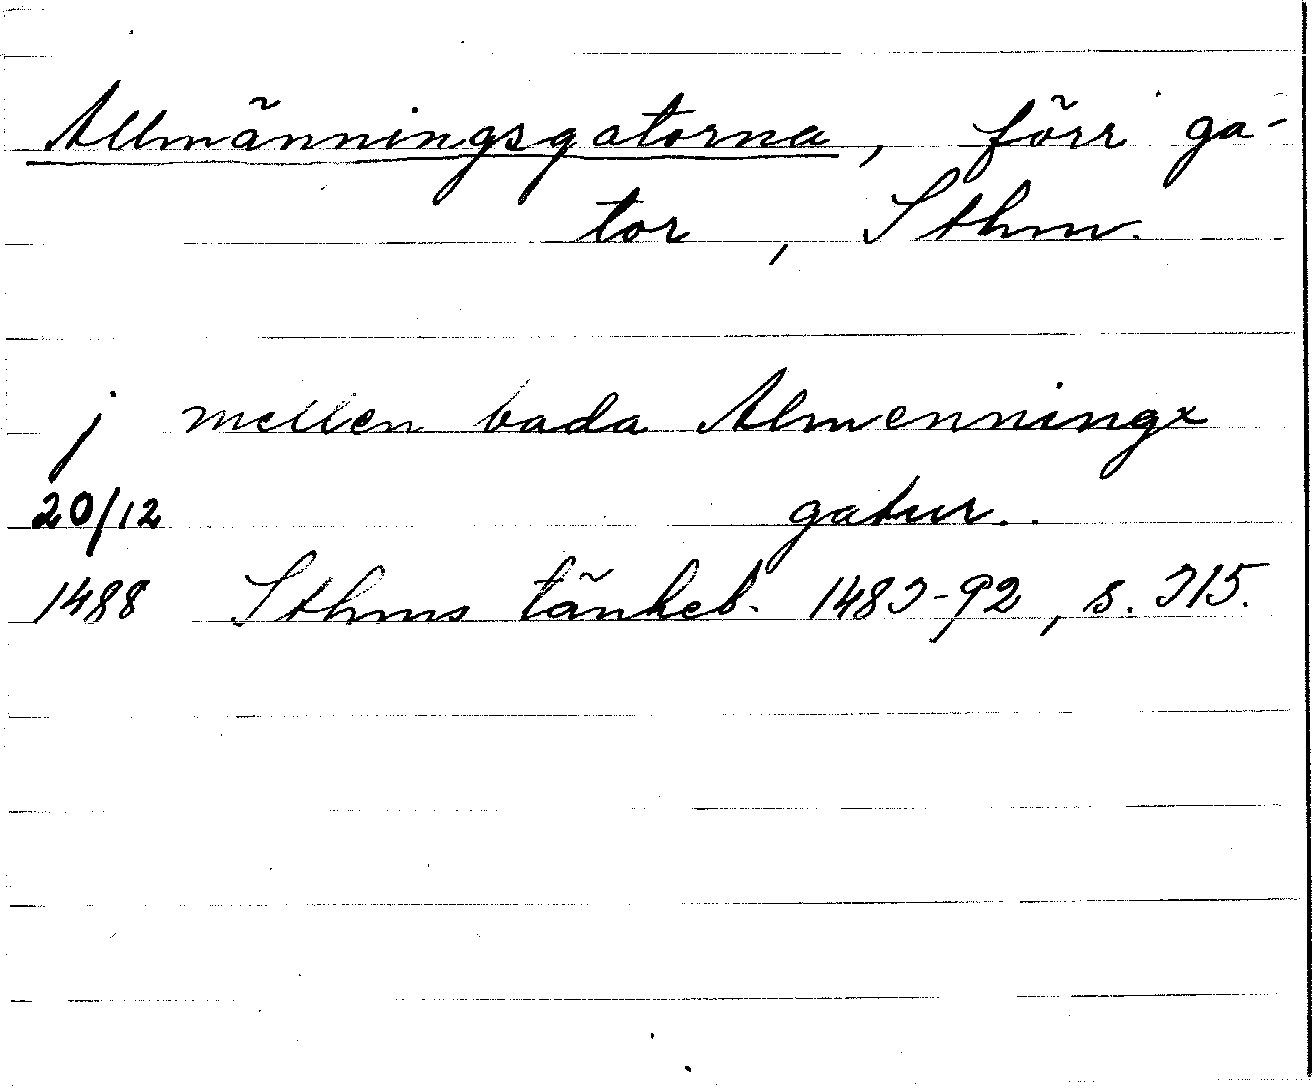 Allmänningsgatorna, förr ga-
tor, Sthm.
j mellen bada Almenningx
20/12 gatur..
1488 Sthms tänkeb. 1483-92, s. 315.